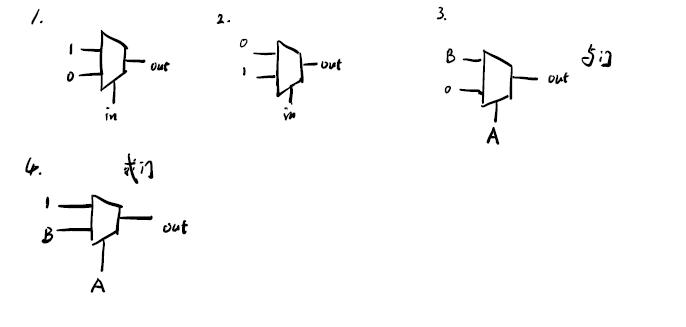 1.
1
0
out
in
2.
0
1
out
in
3.
与门
B
0
out
A
4.
或门
1
B
out
A